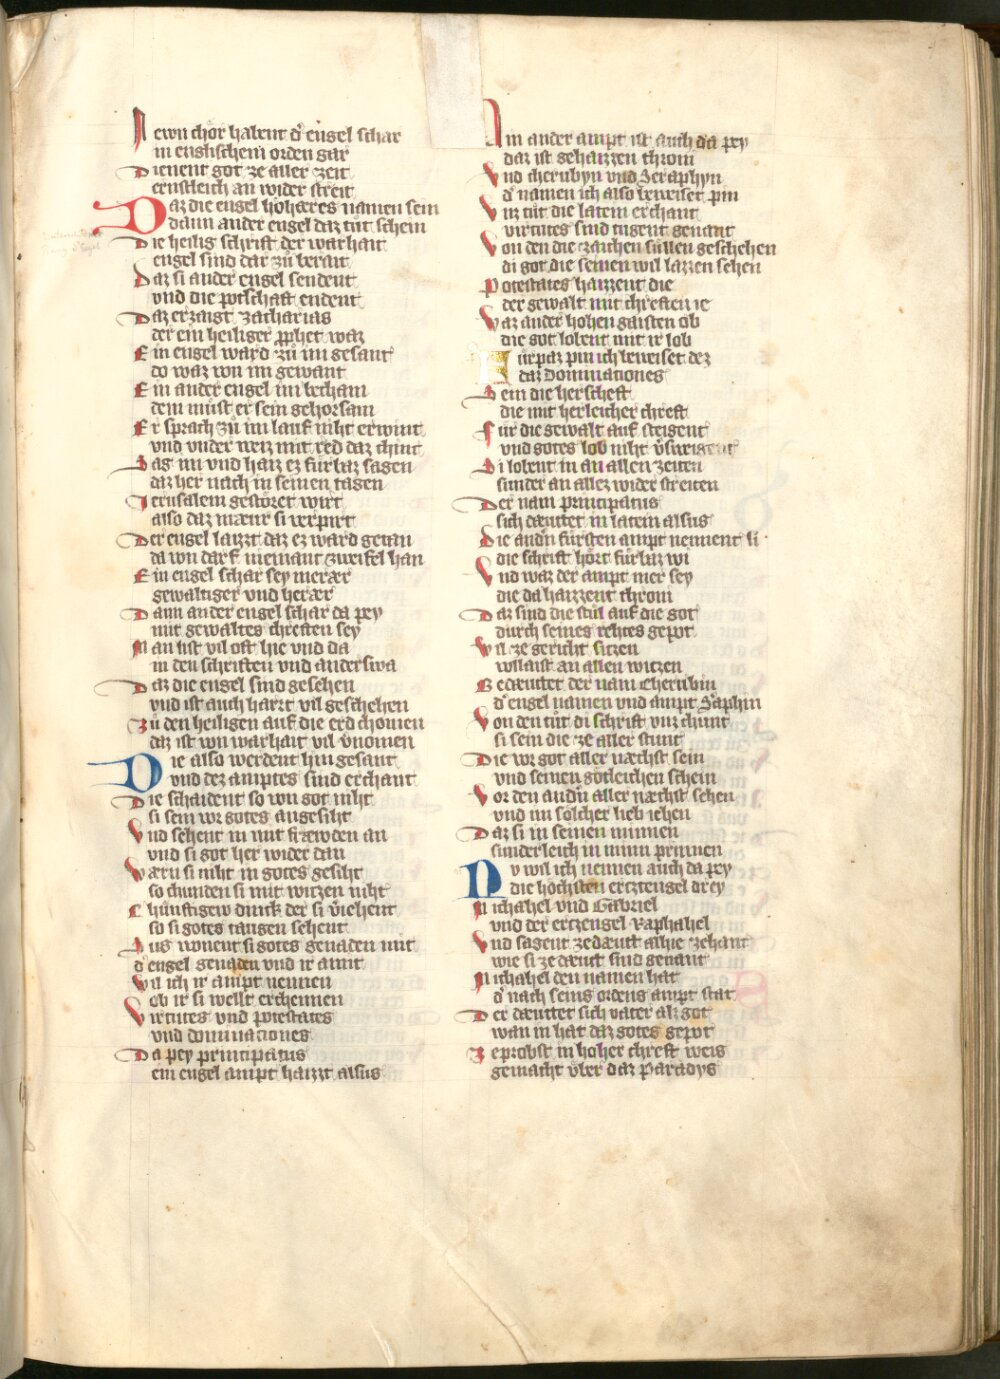 Newn chor habent d engel schar
in englischem orden gar
Dienent got ze aller zeit
ernstleich an wider streit
Daz die engel höhæres namen sein
dann ander engel daz tůt schein
Die heilig schrift der warhait
engel sind dar zů berait
Daz si ander engel sendent
vnd die potschaft endent
Daz erzaigt zacharias
der ein heiliger pphet waz
Ein engel ward zů im gesant
do waz von im gewant
Ein ander engel im becham
dem můst er sein gehorsam
Er sprach zů im lauf niht erwint
vnd vnder weiz mit red daz chint
Sag im vnd haiz ez fürbaz sagen
daz her nach in seinen tagen
Jerusalem gestöret wirt
also daz mænr si verpirt
Der engel laizt daz ez ward getan
da von darf niemant zweifel han
Ein engel schar sey merær
gewaltiger vnd herær
Dann ander engel schar da pey
mit gewaltes chreften sey
Man list vil oft hie vnd da
in den schriften vnd anderswa
Daz die engel sind gesehen
vnd ist auch hartt vil geschehen
Zů den heiligen auf die erd chomen
daz ist von warhait vil vnomen
Die also werdent hin gesant
vnd dez amptes sind erchant
Die schaident so von got niht
si sein vor gotes angesiht
Vnd sehent in mit fræwden an
vnd si got her wider dan
Wærn si niht in gotes gesiht
so chunden si mit witzen niht
Chünftigew dinck der si viehent
so si gotes taugen sehent
Sus wonent si gotes genaden mit
d engel genaden vnd ir amit
Wil ich ir ampt nennen
ob ir si wellt erchennen
Virtutes vnd potestates
vnd dominaciones
Da pey principatus
ein engel ampt haizzt alsus
Ain ander ampt ist auch da pey
daz ist gehaizzen throni
Vnd cherubyn vnd Seraphyn
d namen ich also beweiset pin
Vnz tůt die latein erchant
virtutes sind tugent genant
Von den die zaichen süllen geschehen
di got die seinen wil lazzen sehen
Potestates haizzent die
der gewalt mit chreften ie
Waz ander hohen gaisten ob
die got lobent mit ir lob
Fürpaz pin ich beweiset dez
daz Dominationes
Sein die herscheft
die mit herleicher chreft
Für die gewalt auf steigent
vnd gotes lob niht vsweigent
Di lobent in an allen zeiten
sunder an allez wider streiten
Der nam principatus
sich dæuttet in latein alsus
Die andn fürsten ampt nennent si
die schrift hört fürbaz wi
Vnd waz der ampt mer sey
die da haizzent throni
Daz sind die stül auf die got
durch seines rehtes gepot
Wil ze gericht sitzen
vollaist an allen witzen
Bedæuttet der nam Cherubin
d engel namen vnd ampt Saphin
Von den tůt di schrift vnz chunt
si sein die ze aller stunt
Die vor got aller næchst sein
vnd seinen götleichen schein
Vor den andn aller næchst sehen
vnd im solcher lieb iehen
Daz si in seinen minnen
sunderleich in minn prinnen
Nv wil ich nennen auch da pey
die höchsten ertzengel drey
Michahel vnd Gabriel
vnd der ertzengel Raphahel
Vnd sagent ze dæut alhie zehant
wie si ze dæut sind genant
Michahel den namen hat
d nach seins ordens ampt stat
Der dæuttet sich vater alz got
wan in hat daz gotes gepot
Ze probst in hoher chreft weis
gemacht vber daz Paradys